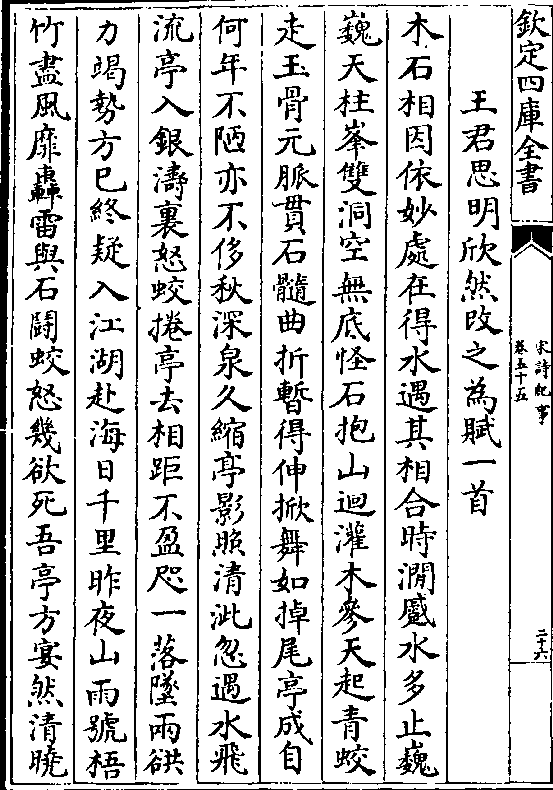 欽定四庫全書
宋詩紀事
卷五十五
二十六
王君思明欣然改之為賦一首
木石相因依妙處在得水遇其相合時澗壑水多止巍
巍天柱峯雙洞空無底怪石抱山迴灌木參天起青蛟
走玉骨元脈貫石髓曲折暫得伸掀舞如掉尾亭成自
何年不陋亦不侈秋深泉久縮亭影照清泚忽遇水飛
流亭入銀濤裏怒蛟捲亭去相距不盈咫一落墜兩谼
力竭勢方已終疑入江湖赴海日千里昨夜山雨號梧
竹盡風靡轟雷與石鬪蛟怒幾欲死吾亭方宴然清曉